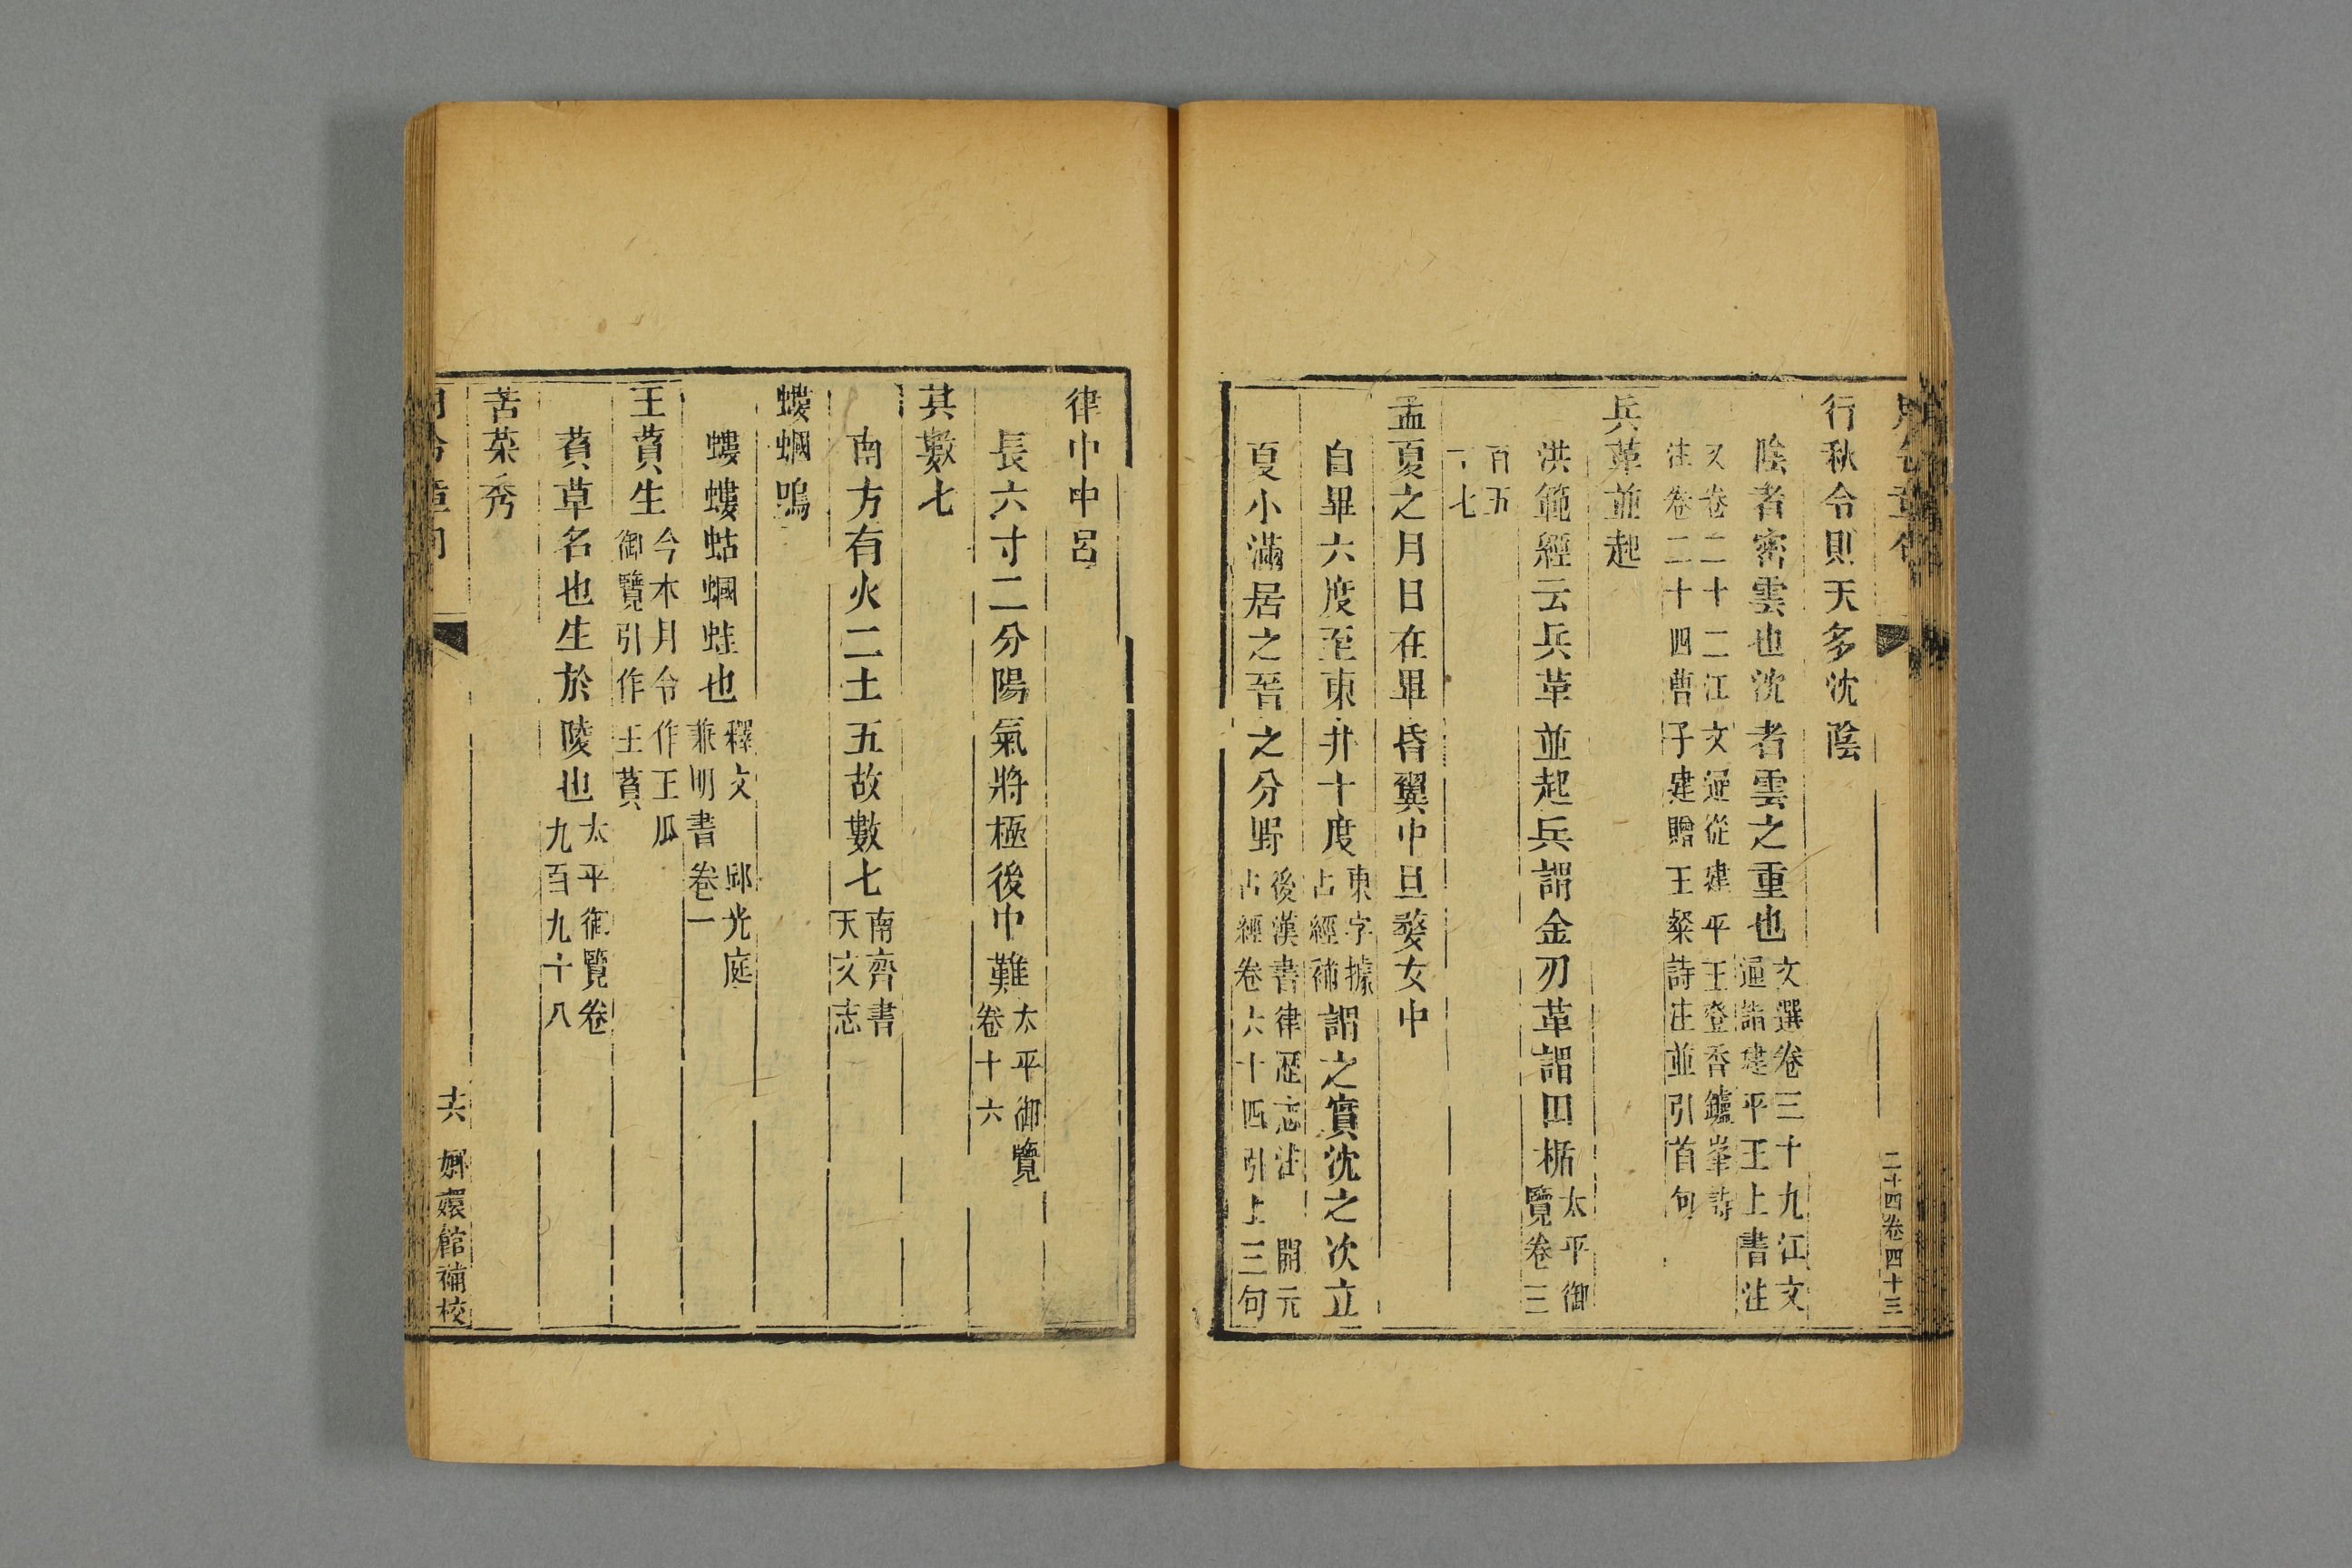 二十四卷四十三
行秋令則天多沈陰
陰者密雲也沈者雲之重也文選卷三十九江文
通詣建平王上書注
又卷二十二江文通從建平王登香鑪峯詩
注卷二十四曹子建贈王粲詩注並引首句
兵革並起
洪範經云兵革並起兵謂金刃革謂甲楯太平御
覽卷三
百五
十七
孟夏之月日在畢昏翼中旦婺女中
自畢六度至東井十度東字據
占經補謂之實沈之次立
夏小滿居之晉之分野後漢書律歷志注 開元
占經卷六十四引上三句
律中中呂
長六寸二分陽氣將極後中難太平御覽
卷十六
其數七
南方有火二土五故數七南齊書
天文志
螻蟈鳴
螻螻蛄蟈蛙也釋文 邱光庭
兼明書卷一
王萯生今本月令作王瓜
御覽引作王萯
萯草名也生於陵也太平御覽卷
九百九十八
苦菜秀
月令章句
十六 嫏嬛館補校